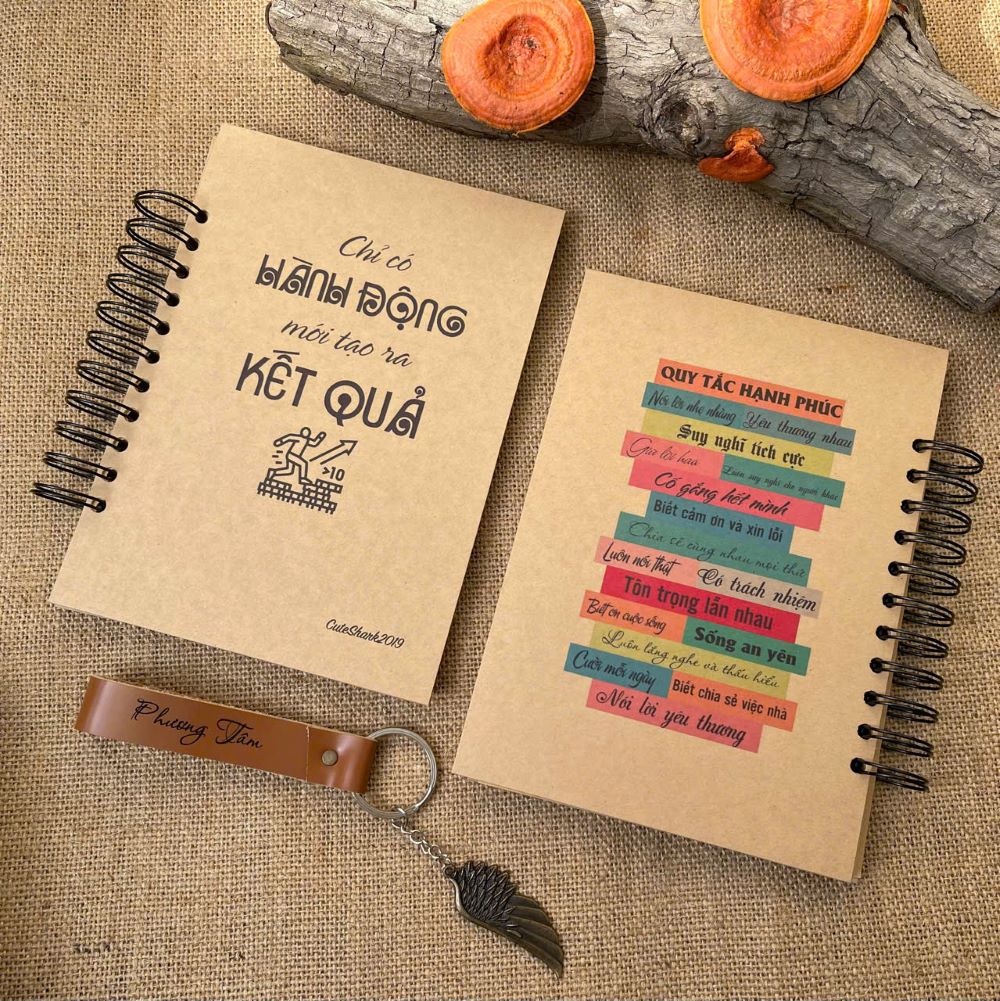 Chỉ có
HÀNH ĐỘNG
mới tạo ra
KẾT QUẢ
>10
CuteShark2019
QUY TẮC HẠNH PHÚC
Nói lời nhẹ nhàng Yêu thương nhau
Suy nghĩ tích cực
Giữ lời hứa Luôn suy nghĩ cho người khác
Cố gắng hết mình
Biết cảm ơn và xin lỗi
Chia sẻ cùng nhau mọi thứ
Luôn nói thật Có trách nhiệm
Tôn trọng lẫn nhau
Biết ơn cuộc sống Sống an yên
Luôn lắng nghe và thấu hiểu
Cười mỗi ngày Biết chia sẻ việc nhà
Nói lời yêu thương
Phương Tâm